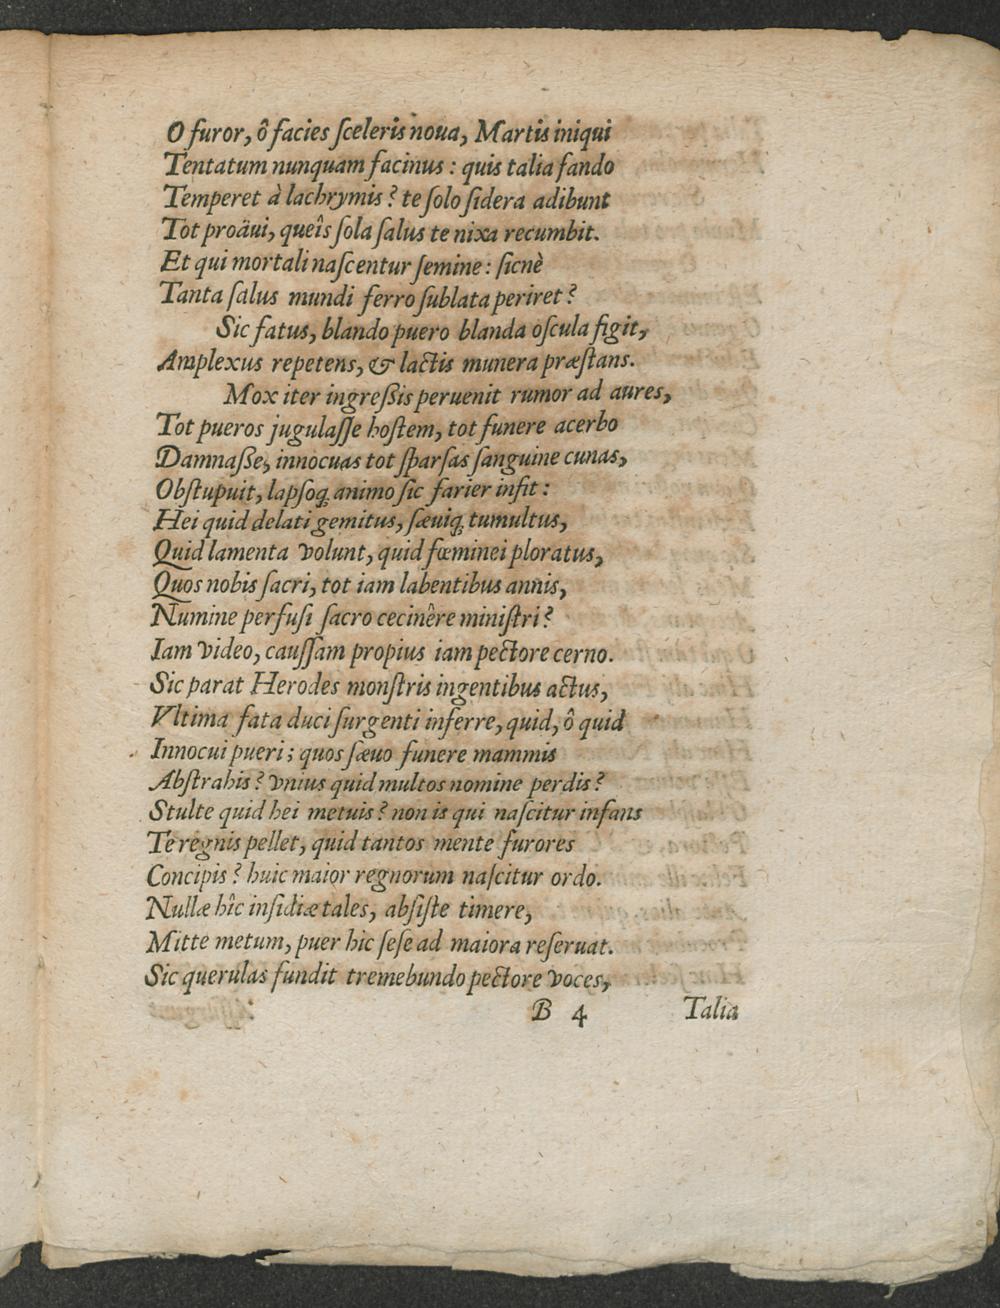 O furor, ô facies ſceleris noua, Martis iniqui
Tentatum nunquam facinus : quis talia fando
Temperet à lachrymis ? te ſolo ſidera adibunt
Tot proäui, queîs ſola ſalus te nixa recumbit.
Et qui mortali naſcentur ſemine : ſicnè
Tanta ſalus mundi ferro ſublata periret ?
Sic fatus, blando puero blanda oſcula figit,
Amplexus repetens, & lactis munera præſtans.
Mox iter ingreſsis peruenit rumor ad aures,
Tot pueros jugulaſſe hoſtem, tot funere acerbo
Damnaſse, innocuas tot ſparſas ſanguine cunas,
Obſtupuit, lapſoq́ animo ſic farier infit :
Hei quid delati gemitus, ſæuiq́ tumultus,
Quid lamenta volunt, quid fœminei ploratus,
Quos nobis ſacri, tot iam labentibus annis,
Numine perfuſi ſacro cecinêre miniſtri ?
Iam video, cauſſam propius iam pectore cerno.
Sic parat Herodes monſtris ingentibus actus,
Vltima fata duci ſurgenti inferre, quid, ô quid
Innocui pueri ; quos ſæuo funere mammis
Abſtrahis ? vnius quid multos nomine perdis ?
Stulte quid hei metuis ? non is qui naſcitur infans
Te regnis pellet, quid tantos mente furores
Concipis ? huic maior regnorum naſcitur ordo.
Nullæ hîc inſidiæ tales, abſiſte timere,
Mitte metum, puer hic ſeſe ad maiora reſeruat.
Sic querulas fundit tremebundo pectore voces,
B 4 Talia